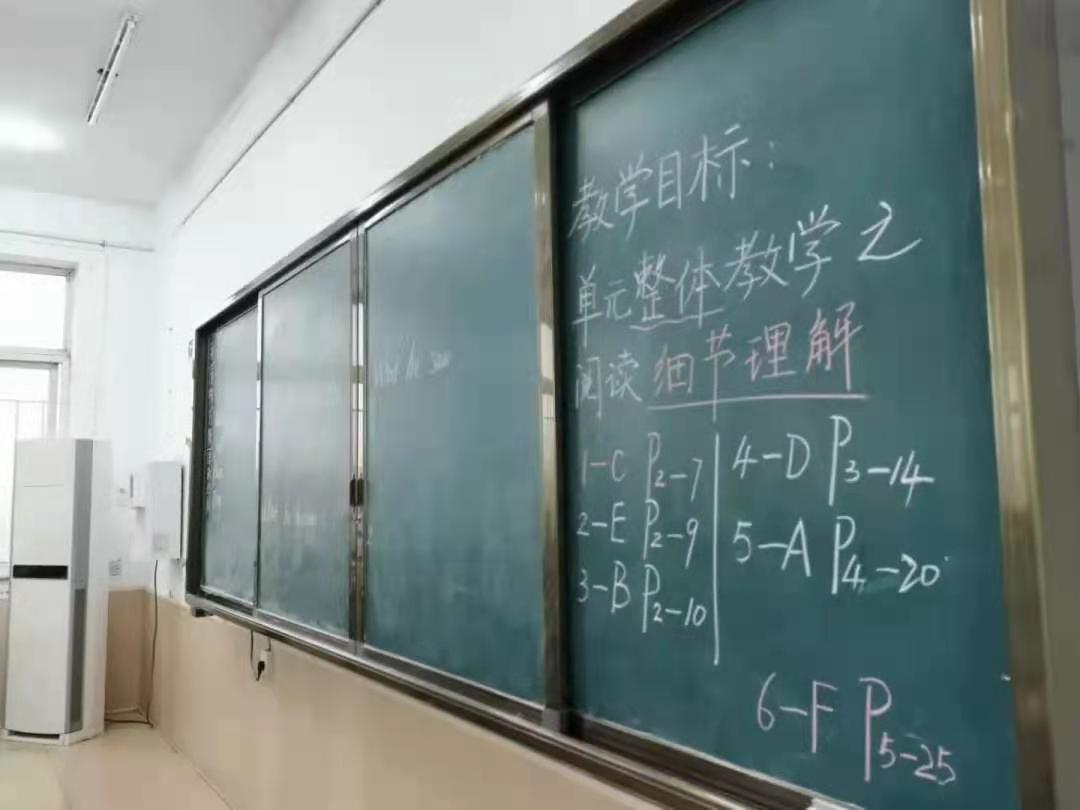 教学目标:
单元整体教学之
阅读细节理解
1-C P2-7
2-E P2-9
3-B P2-10
4-D P3-14
5-A P4-20
6-F P5-25